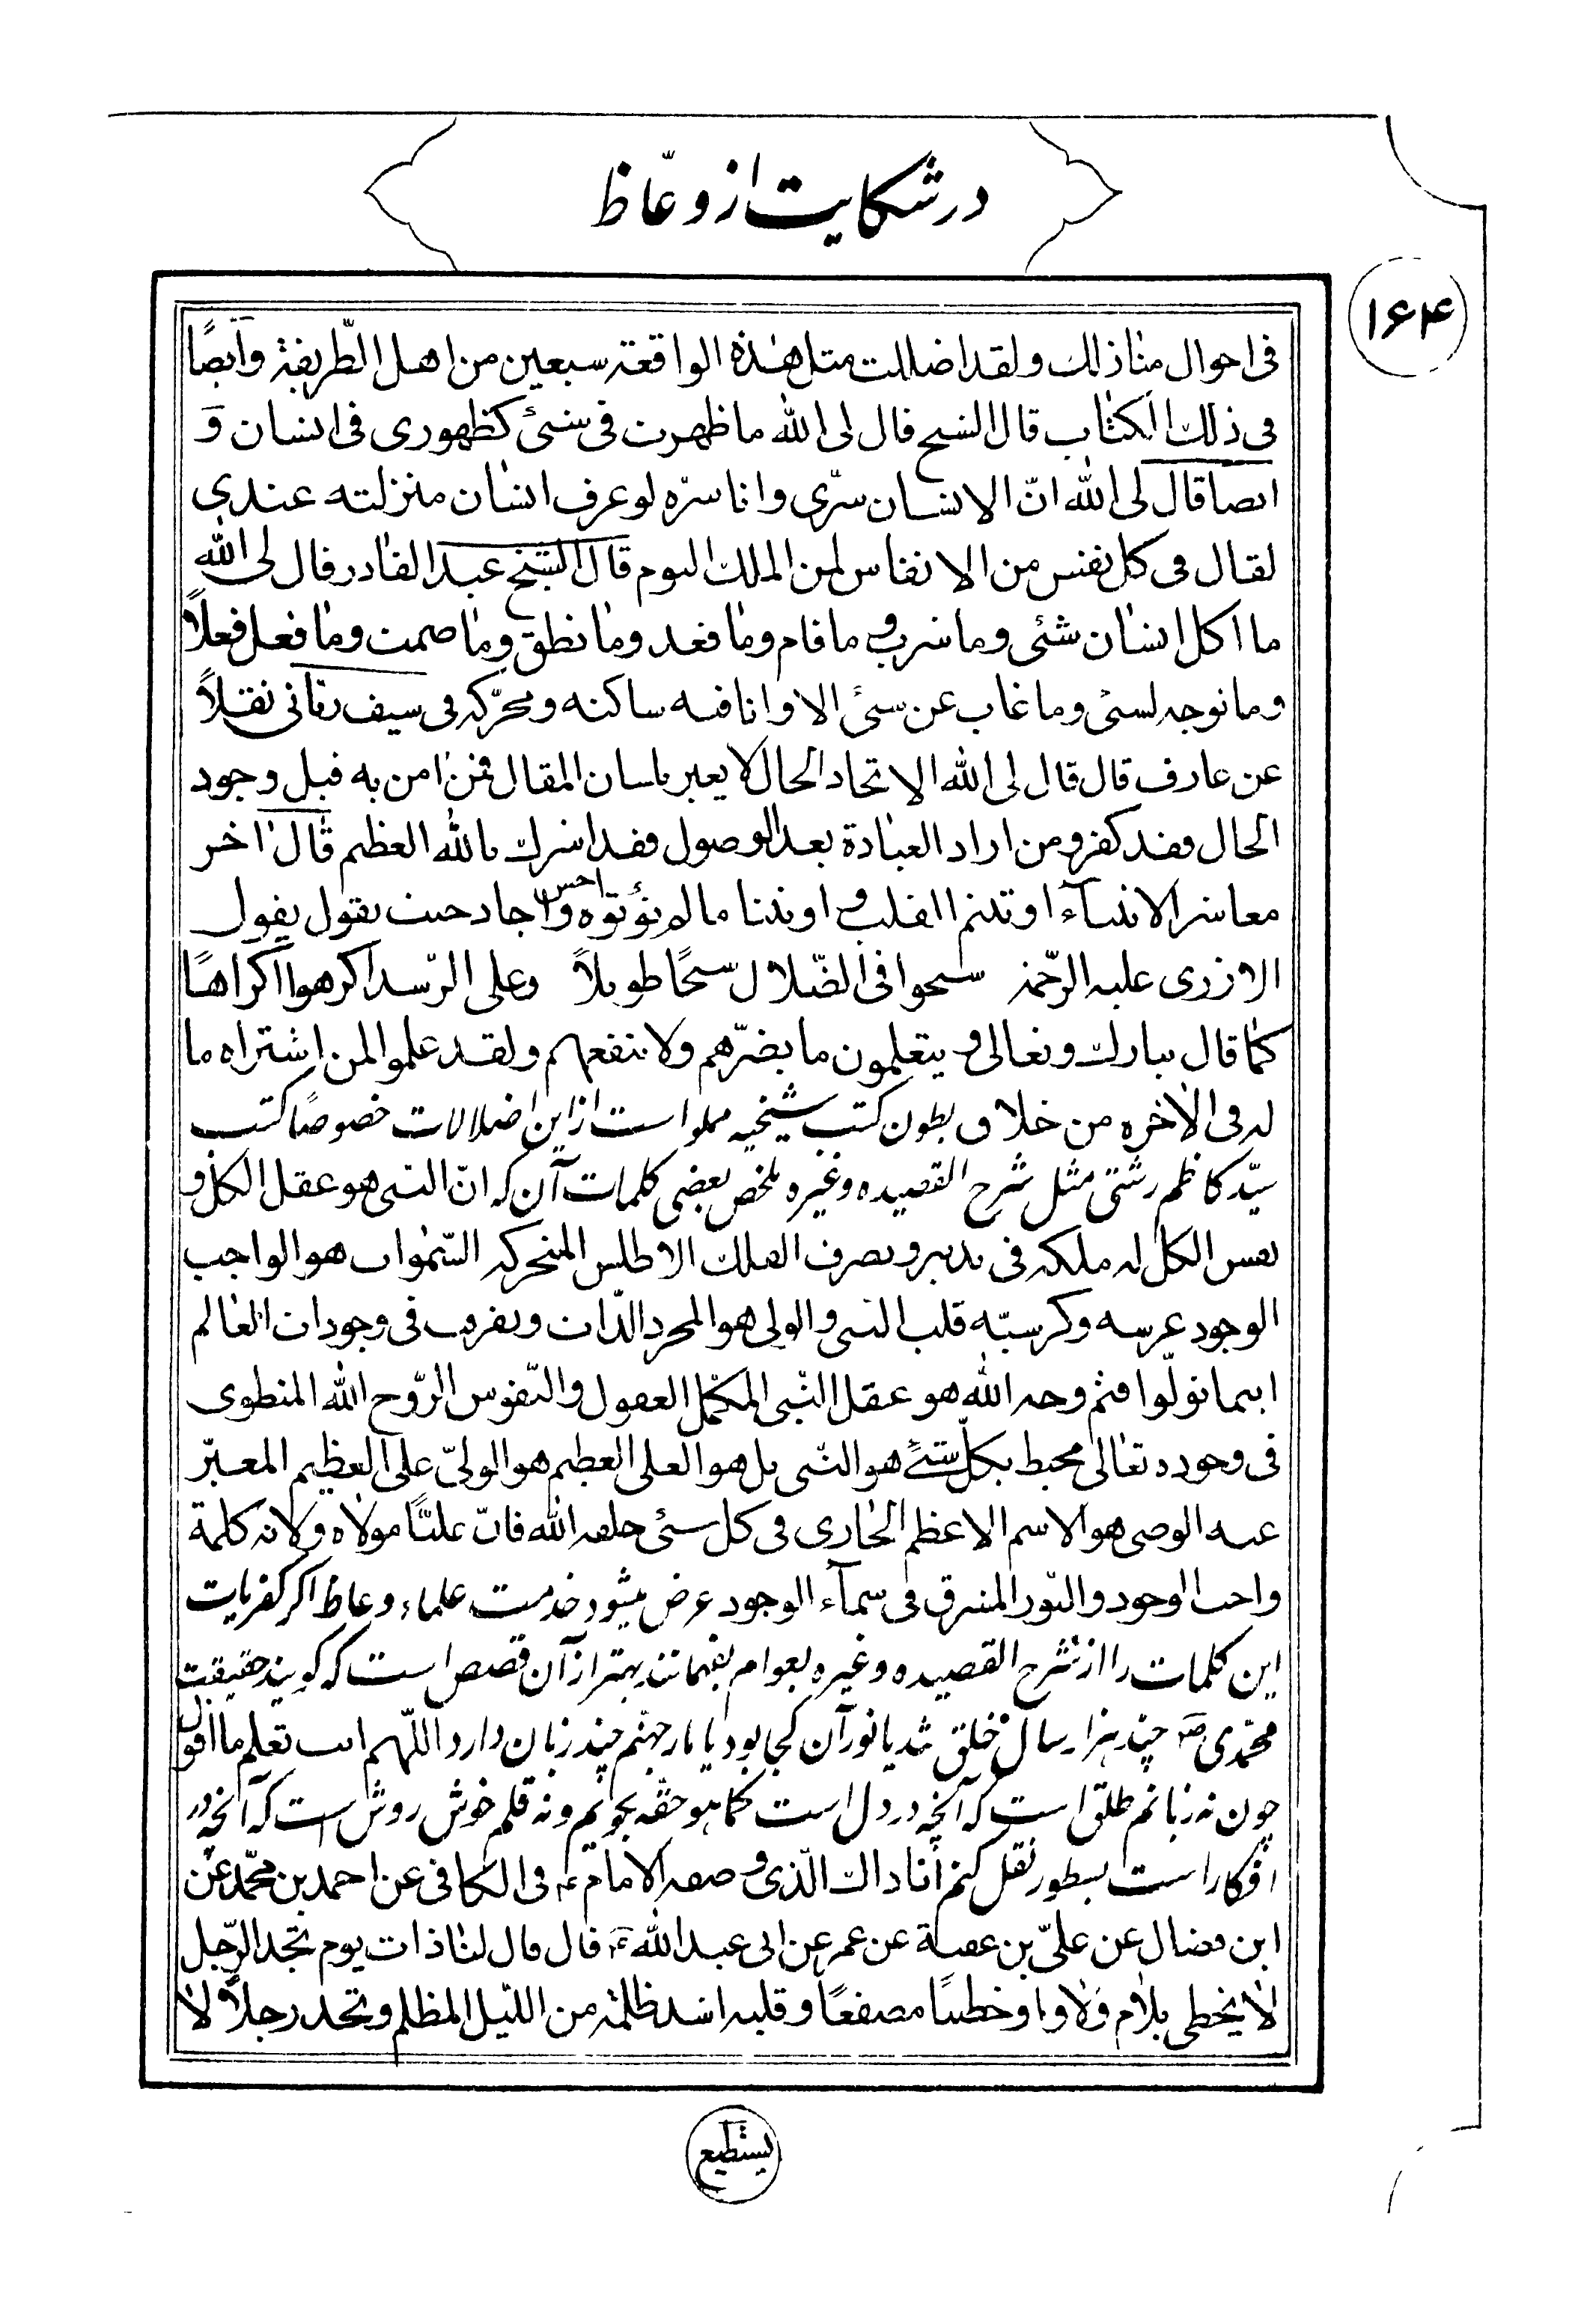 در شکایت از وعّاظ
۱۶۴
فی احوال منا ذلک ولقد اضللت مثل هذه الواقعة سبعین من اهل الطّریقة وایضًا
فی ذلک الکتاب قال الشیخ قال لی الله ما ظهرت فی شیئ کظهوری فی انسان وَ
ایضا قال لی الله انّ الانسان سرّی وانا سرّه لو عرف انسان منزلته عندی
لقال فی کل نفس من الانفاس لمن الملک الیوم قال الشیخ عبد القادر قال لی الله
ما اکل انسان شئی وما شرب و ما قام وما قعد وما نطق وما صمت وما فعل فعلاً
وما توجه لشئ وما غاب عن شیئ الا وانا فیه ساکنه ومحرّکه فی سیف ربّانی نقلاً
عن عارف قال قال لی الله الاتحاد الحال لا یعبر بلسان المقال فمن امن به قبل وجود
الحال فقد کفر ومن اراد العبادة بعد الوصول فقد اشرک بالله العظیم قال اخر
معاشر الانبیآء اوتیتم القلب و اوتینا ما لم تؤتوه واحسن اجاد حیث یقول یقول
الازری علیه الرّحمة سبحوا فی الضّلال سبحًا طویلاً وعلی الرّشد اکرهوا اکراهًا
کما قال تبارک وتعالی و یتعلمون ما یضرّهم ولا ینفعهم ولقد علموا لمن اشتراه ما
له فی الآخره من خلاق بطون کتب شیخیه مملو است از این اضلالات خصوصًا کتب
سیّد کاظم رشتی مثل شرح القصیده وغیره ملخص بعضی کلمات آن که انّ النبی هو عقل الکل و
نفس الکل له ملکه فی تدبیر وتصرف الفلک الاطلس المتحرکه السّموات هو الواجب
الوجود عرشه وکرسیّه قلب النبی والولی هو المجرد الذّات وتغریب فی وجودات العالم
اینما تولّوا فثم وجه الله هو عقل النّبی المکمّل العقول والنّفوس الرّوح الله المنطوی
فی وجوده تعالی محیط بکلّ شئ هو النّبی بل هو العلی العظیم هو الولیّ علی العظیم المعبّر
عنه الوصی هو الاسم الاعظم الجاری فی کل شئی خلقه الله فانّ علیًّا مولاه ولانه کلمة
واجب الوجود والنّور المشرق فی سمآء الوجود عرض میشود خدمت علماء وعاظ اکر کفریات
این کلمات را از شرح القصیده وغیره بعوام بفهمانند بهتر از آن قصص است که کویند حقیقت
محمّدی ص چند هزار سال خلق شد یا نور آن کجا بود یا نار جهنّم چند زبان دارد اللّهم انت تعلم ما اقول
چون نه زبانم طلق است که آنچه در دل است کما هو حقّه بجویم ونه قلم خوش روش است که آنچه در
افکار است بسطور نقل کنم أنا ذاک الّذی وصفه الامام ع فی الکافی عن احمد بن محمّد عن
ابن فضال عن علیّ بن عقبة عن عمر عن ابی عبد الله ع قال قال لنا ذات یوم تجد الرّجل
لا یخطی بلام ولا واو خطیبًا مصقعًا وقلبه اشد ظلمة من اللّیل المظلم وتجد رجلاً لا
یستطیع